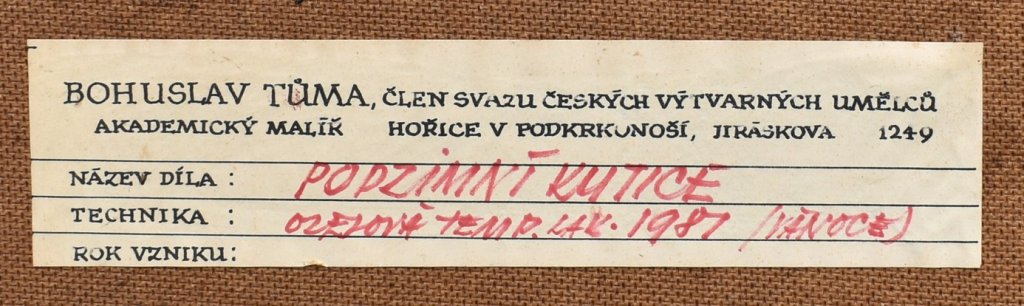 BOHUSLAV TŮMA, ČLEN SVAZU ČESKÝCH VÝTVARNÝCH UMĚLCŮ
AKADEMICKÝ MALÍŘ HOŘICE V PODKRKONOŠÍ, JIRÁSKOVA 1249
NÁZEV DÍLA : PODZIMNÍ KYTICE
TECHNIKA : OLEJOVÁ TEMP. LAK. 1987 (VÁNOCE)
ROK VZNIKU: